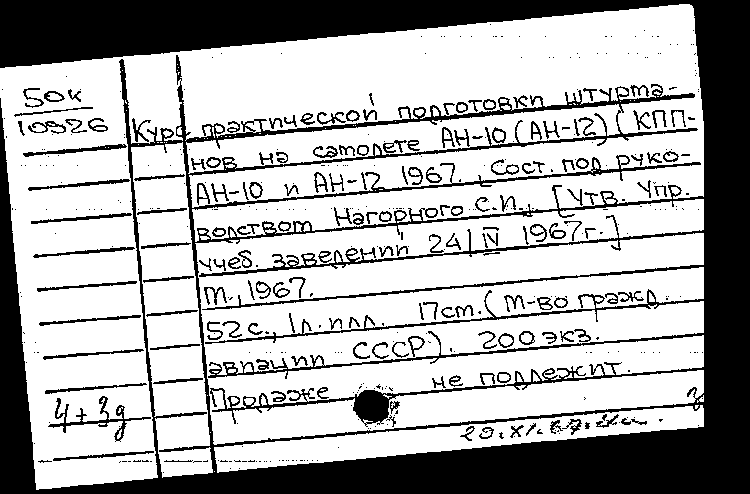 50к
10926
Курс практической подготовки штурма-
нов на самолете АН-10 (АН-12) (КПП-
АН-10 и АН-12 1967. Сост. под руко-
водством Нагорного С.И., [Утв. Упр.
учеб. заведений 24/IV 1967г.]
М., 1967.
52с., 1л. илл. 17см. (М-во гражд.
авиации СССР). 200 экз.
Продаже не подлежит.
4+3д
20.XI.67.